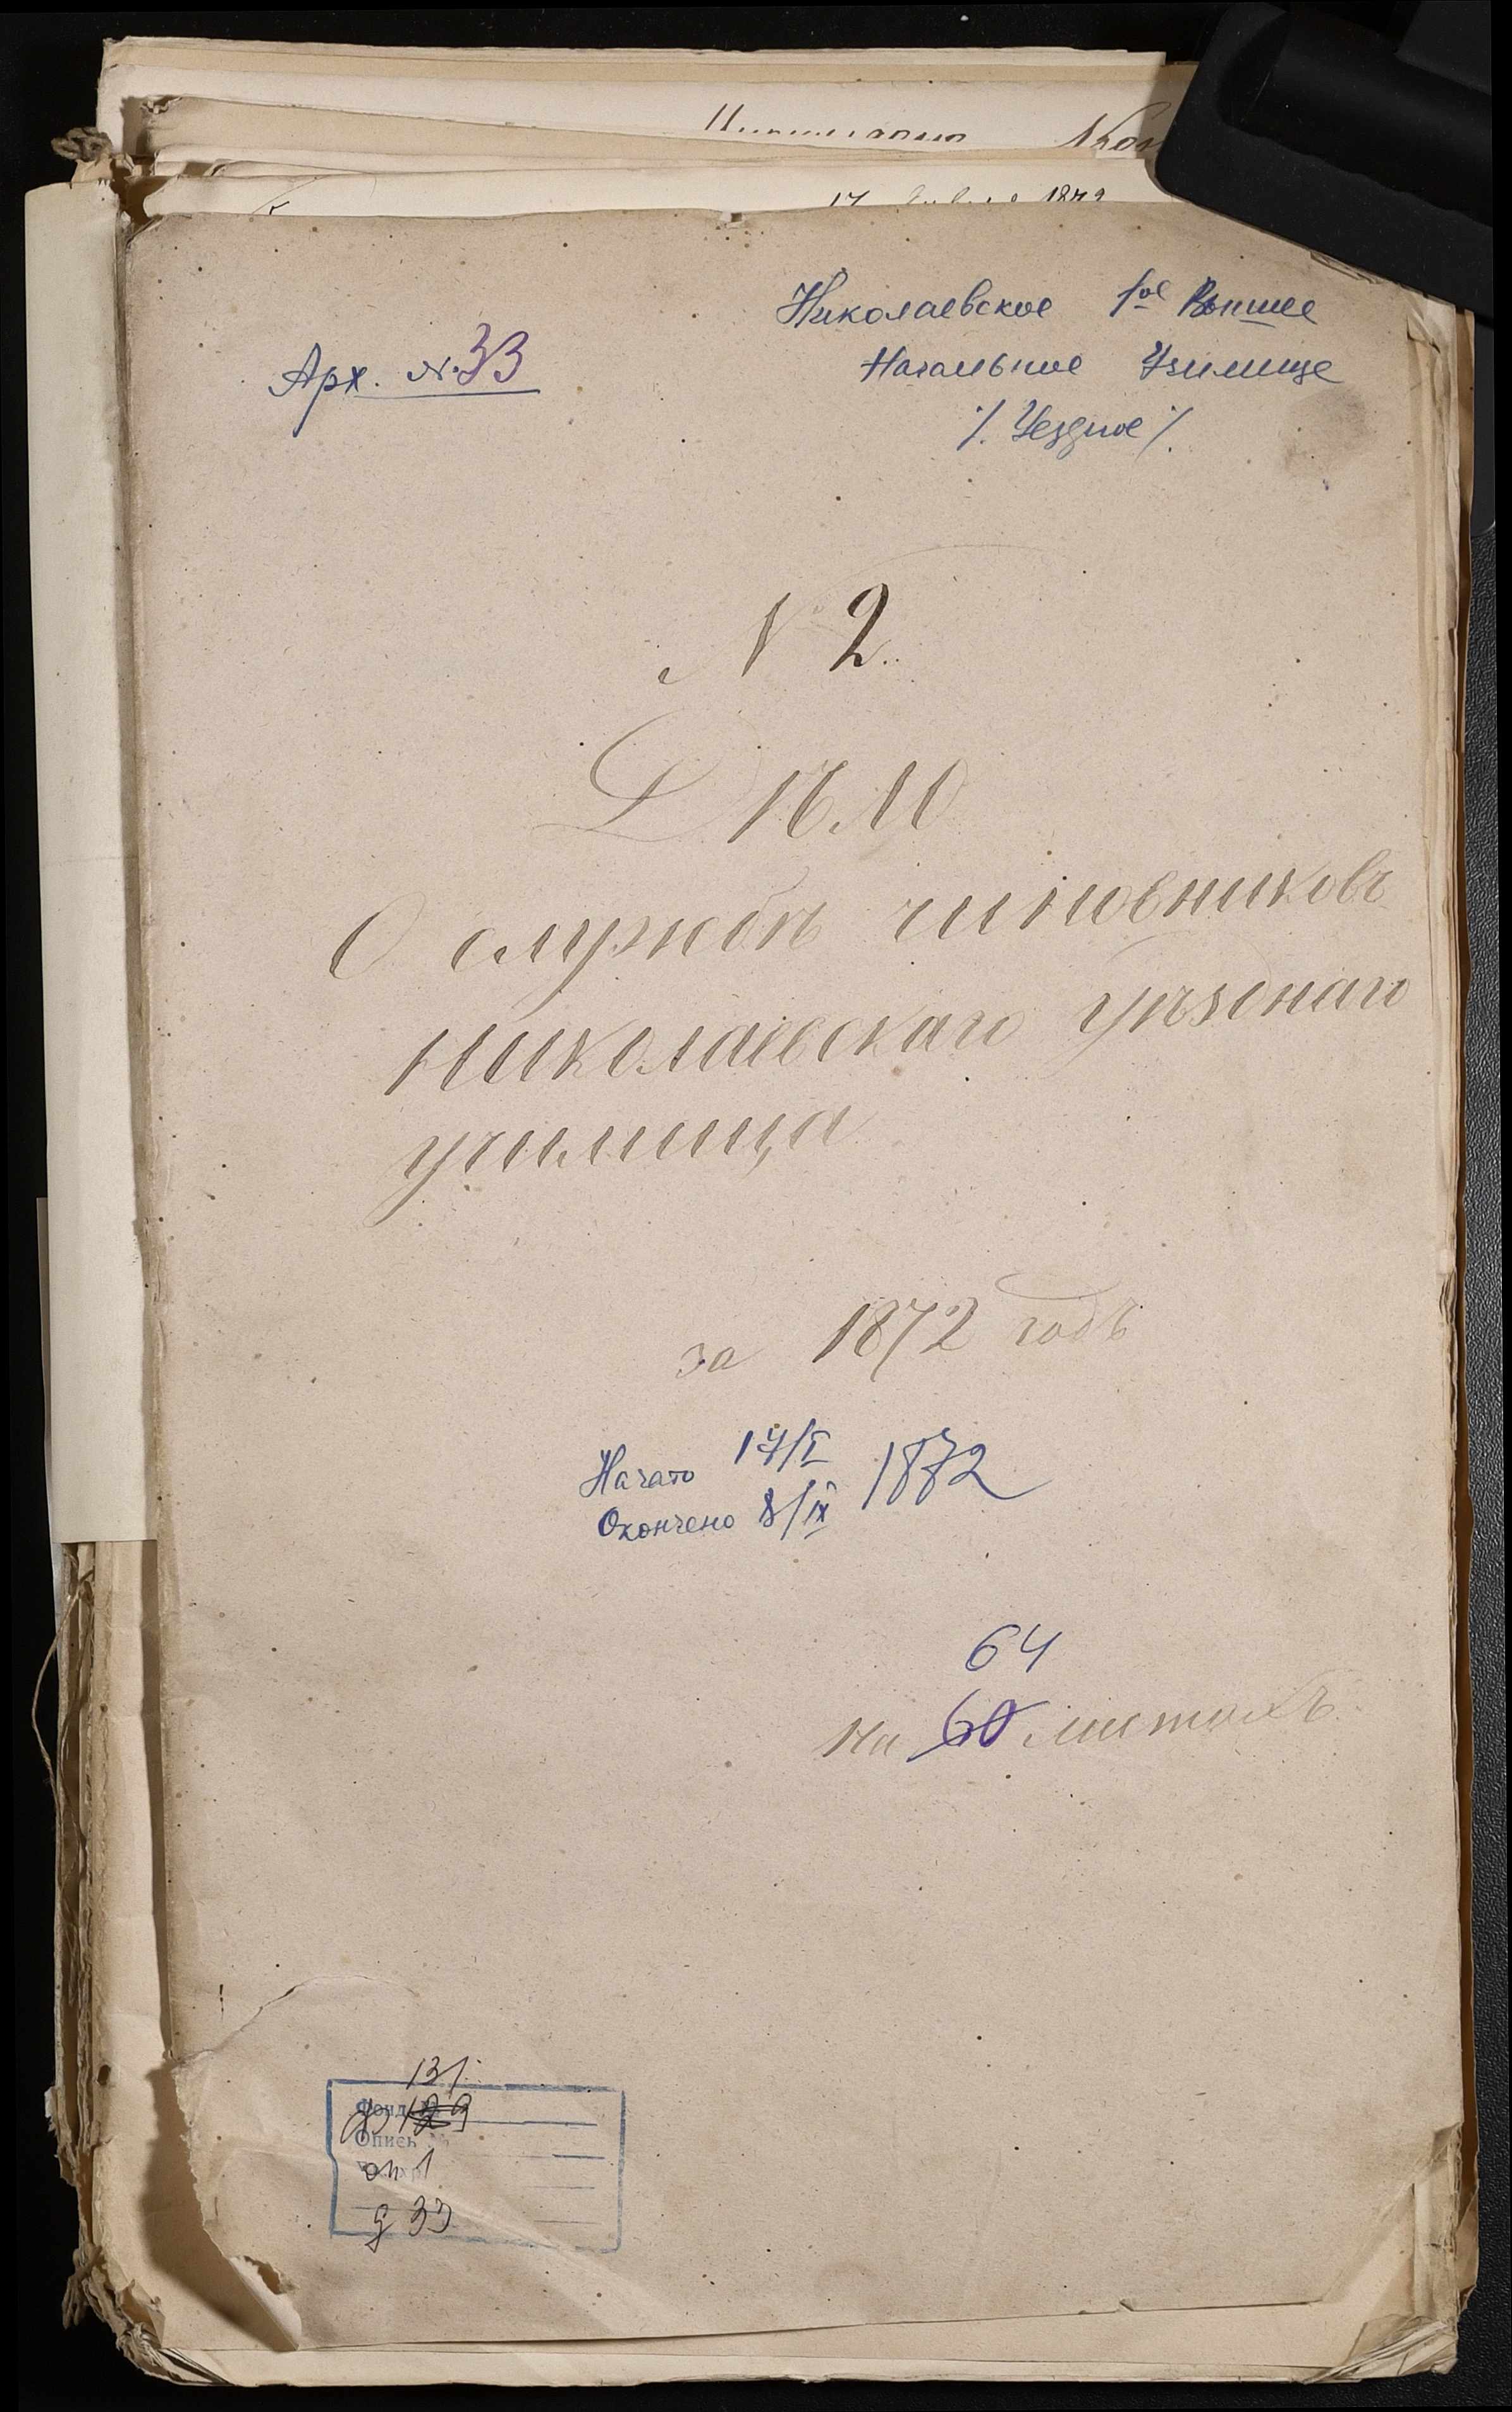 17 1872
Николаевское 1ое Высшее
Арх. №33
Начальное Училище
/. Уездное /.
№ 2.
Дѣло
О службѣ чиновниковъ
Николаевскаго уѣзднаго
училища
за 1872 годъ
Начато 17/I 1872
Окончено 8/IX
64
на 60 листахъ
131
Фонд
ф 129
Опись
оп 1
д 33